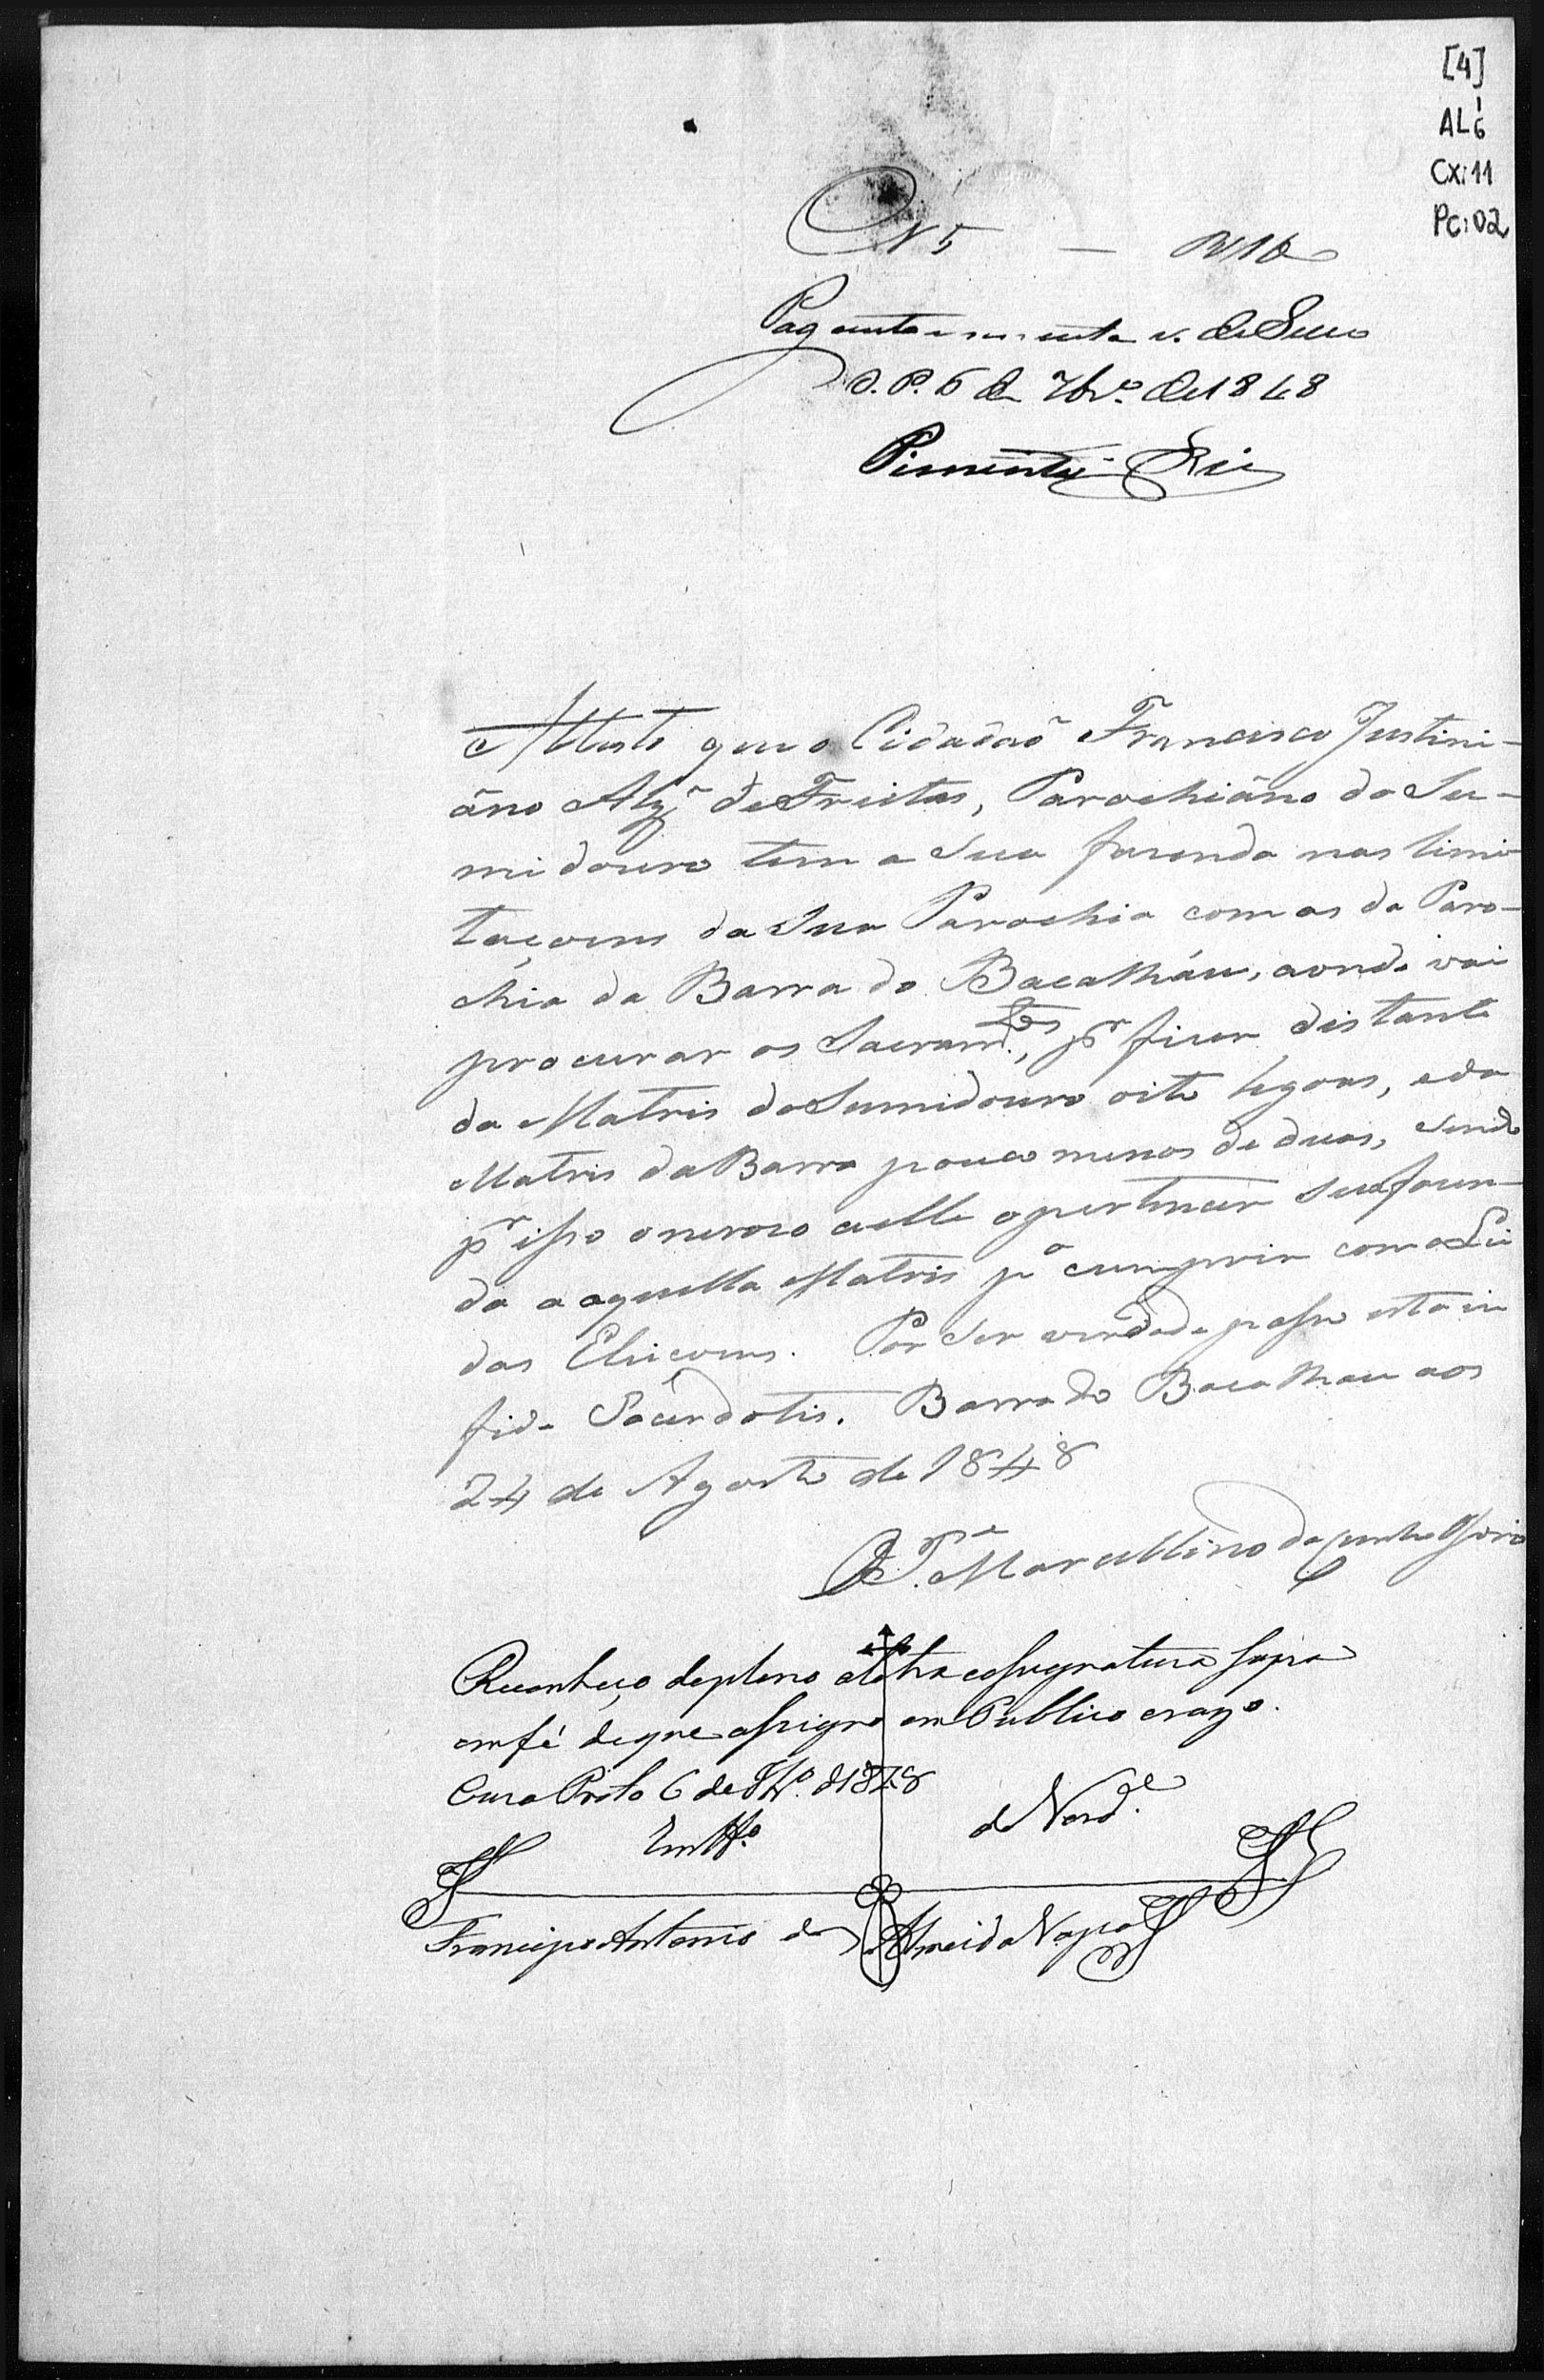 [4]
AL 1 6
Cx: 11
Pc: 02
N 5 — 160
Pag cento e sessenta r. de Sello
O. P. 6 de 7br.º de 1848
Pimentel Reis
Attesto que o Cidadaõ Francisco Justini-
ãno de Freitas, Parochiãno do Su-
midouro tem a Sua fazenda nas limi-
taçoens da Sua Parochia com as da Paro-
chia da Barra do Bacalháu, aonde vai
procurar os Sacram.tos, p.r ficar distante
da Matris do Sumidouro oito legoas, e da
Matris da Barra pouco menos de duas, sendo
p.r isso oneroso a elle o pertencer sua fazen-
da a aquella Matris p.a cumprir com a Lei
das Eleiçoens. Por Ser verdade passo esta in
fide Sacerdotis. Barra do Bacalhau aos
24 de Agosto de 1848
O P.e Marcellino da Cunha Osorio
Reconheço de pleno a letra e assignatura supra
em fé de que assigno em Publico e razo.
Ouro Preto 6 de 7br.º d1848
Em tt.º de Verd.e
Francisco Antonio de Almeida